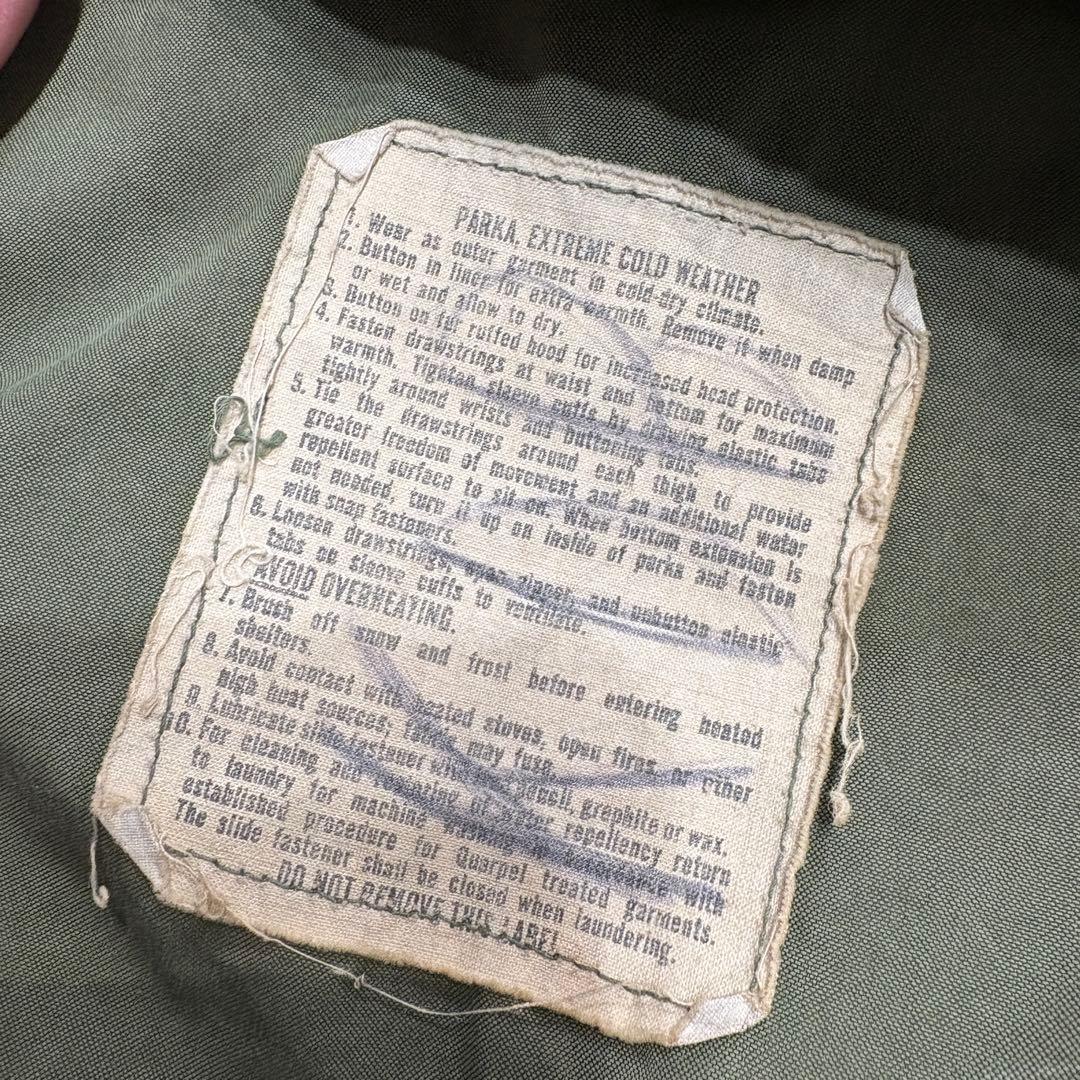 PARKA, EXTREME COLD WEATHER
1. Wear as outer garment in cold-dry climate.
2. Button in liner for extra warmth. Remove it when damp
or wet and allow to dry.
3. Button on fur ruffed hood for increased head protection.
4. Fasten drawstrings at waist and bottom for maximum
warmth. Tighten sleeve cuffs by drawing elastic tabs
tightly around wrists and buttoning tabs.
5. Tie the drawstrings around each thigh to provide
greater freedom of movement and an additional water
repellent surface to sit on. When bottom extension is
not needed, turn it up on inside of parka and fasten
with snap fasteners.
6. Loosen drawstrings, open zipper, and unbutton elastic
tabs on sleeve cuffs to ventilate.
AVOID OVERHEATING.
7. Brush off snow and frost before entering heated
shelters.
8. Avoid contact with heated stoves, open fires, or other
high heat sources. Fabric may fuse.
9. Lubricate slide fastener with pencil, graphite or wax.
0. For cleaning and of water repellency return
to laundry for machine washing in accordance with
established procedure for Quarpel treated garments.
The slide fastener shall be closed when laundering.
DO NOT REMOVE THIS LABEL